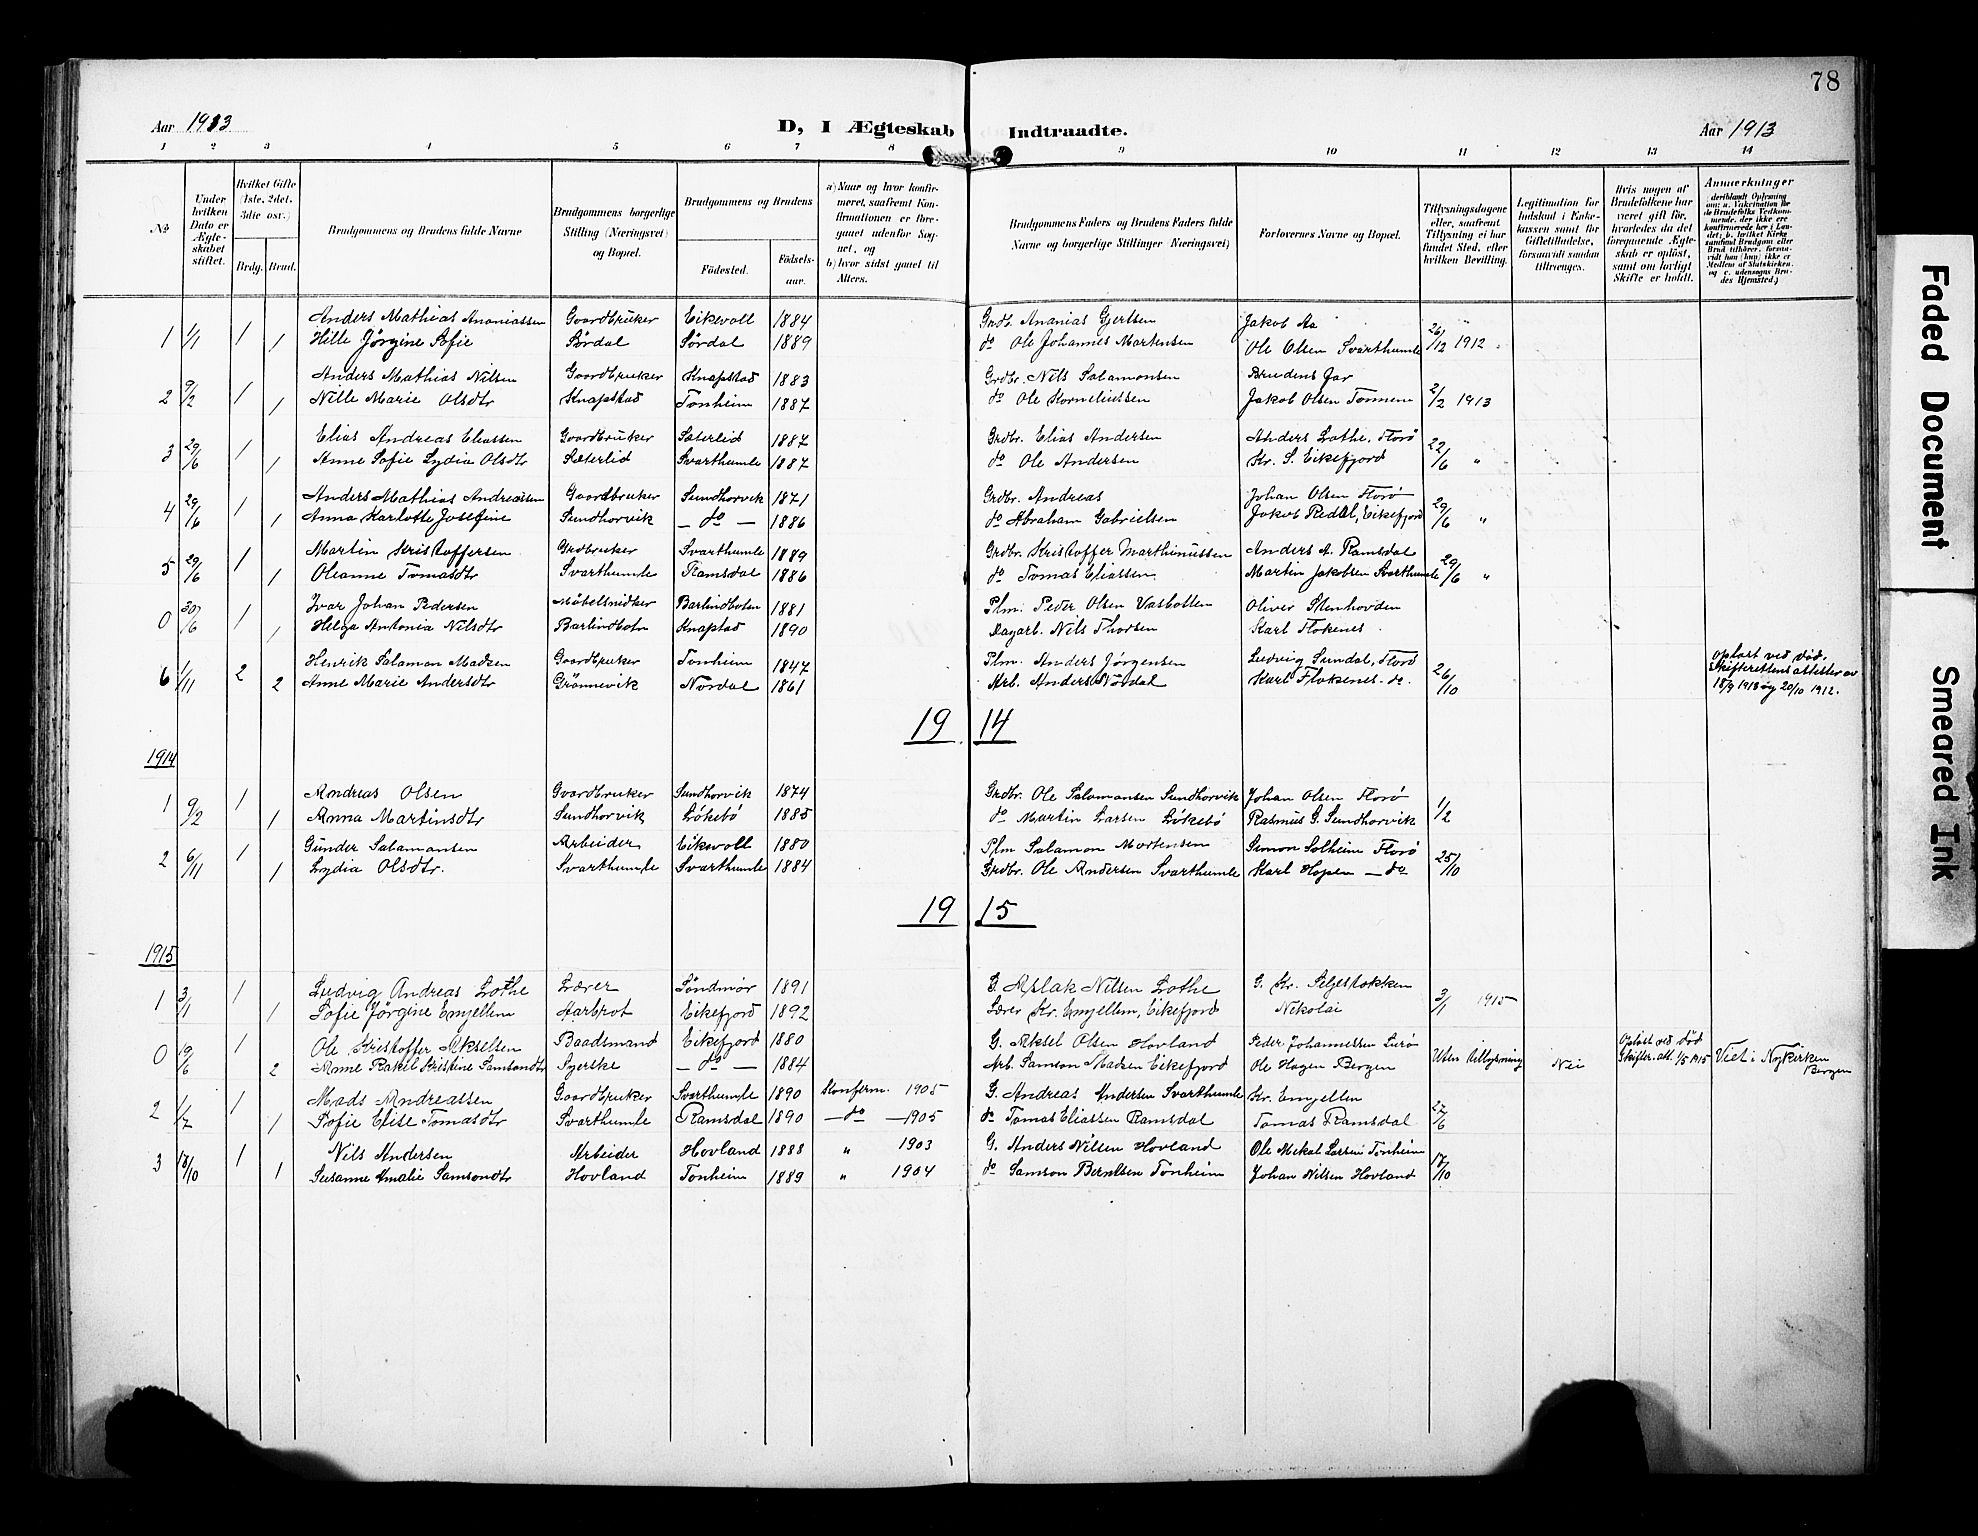 78
Aar 1913 D, I Ægteskab Indtraadte. Aar 1913
1 2 3 4 5 6 7 8 9 10 11 12 13 14
№
Under hvilken Dato er Ægteskabet stiftet.
Hvilket Gifte (1ste, 2det, 3die osv.)
Brdg. Brud.
Brudgommens og Brudens fulde Navne
Brudgommens borgerlige Stilling (Næringsvei) og Bopæl.
Brudgommens og Brudens
Födested. Födselsaar.
a) Naar og hvor konfirmeret, saafremt Konfirmationen er foregaaet udenfor Sognet, og
b) hvor sidst gaaet til Alters.
Brudgommens Faders og Brudens Faders fulde Navne og borgerlige Stillinger (Næringsvei)
Forlovernes Navne og Bopæl.
Tillysningsdagene eller, saafremt Tillysning ei har fundet Sted, efter hvilken Bevilling.
Legitimation for Indskud i Enkekassen samt for Giftetilladelse, forsaavidt saadan tiltrænges.
Hvis nogen af Brudefolkene har været gift før, hvorledes da det foregaaende Ægteskab er opløst, samt om lovligt Skifte er holdt.
Anmærkninger
(deriblandt Oplysning om: a. Vakcination for de Brudefolks Vedkommende, der ikke ere konfirmerede her i Landet; b. hvilket Kirkesamfund Brudgom eller Brud tilhører, forsaavidt han (hun) ikke er Medlem af Statskirken, og c. udensogns Brudes Hjemsted.)
1 1/1 1 Anders Mathias Ananiassen Gaardbruker Eikevoll 1884 Grdb. Ananias Gjertsen Jakob Aa 26/12 1912
1 Hille Jørgine Sofie Sørdal Sørdal 1889 do Ole Johannes Martensen Ole Olsen Svarthumle
2 9/2 1 Anders Mathias Nilsen Gaardbruker Knapstad 1883 Grdbr. Nils Salamonsen Brudens far 2/2 1913
1 Nille Marie Olsdtr Knapstad Tonheim 1887 do Ole Korneliussen Jakob Olsen Tonheim
3 29/6 1 Elias Andreas Eliassen Gaardbruker Sæterlid 1887 Grdbr. Elias Andersen Anders Lothe, Florø 22/6 "
1 Anne Sofie Lydia Olsdtr Sæterlid Svarthumle 1887 do Ole Andersen Kr. S. Eikefjord
4 29/6 1 Anders Mathias Andreassen Gaardbruker Sundhorvik 1871 Grdbr. Andreas Johan Olsen Florø 29/6 "
1 Anna Karlotte Josefine Sundhorvik – do – 1886 do Abraham Gabrielsen Jakob Redal, Eikefjord
5 29/6 1 Martin Kristoffersen Grdbruker Svarthumle 1889 Grdbr. Kristoffer Marthinussen Anders A. Ramsdal 29/6 "
1 Oleanne Tomasdtr Svarthumle Ramsdal 1886 do Tomas Eliassen Martin Jakobsen Svarthumle
0 30/6 1 Ivar Johan Pedersen Møbelsnidker Barlindboten 1881 Plm. Peder Olsen Vasbotten Oliver Stenhovden
1 Helga Antonia Nilsdtr Barlindbotn Knapstad 1890 Dagarb. Nils Thorsen Karl Flokenes
6 1/11 2 Henrik Salamon Madsen Gaardbruker Tonheim 1847 Plm. Anders Jørgensen Ludvig Sundal, Florø 26/10 opløst ved død.
2 Anne Marie Andersdtr Grønnevik Nordal 1861 Arb. Anders Nordal Karl Flokenes – do. Skifterettens attester av
18/9 1913 og 20/10 1912.
19 14
1914
1 9/2 1 Andreas Olsen Gaardbruker Sundhorvik 1874 Grdbr. Ole Salamonsen Sundhorvik Johan Olsen Florø 1/2
1 Anna Martinsdtr Sundhorvik Løkebø 1885 do Martin Larsen Løkebø Rasmus G. Sundhorvik
2 6/11 1 Gunder Salamonsen Arbeider Eikevoll 1880 Plm Salamon Mortensen Simon Solheim Florø 25/10
1 Lydia Olsdtr. Svarthumle Svarthumle 1884 Grdbr. Ole Andersen Svarthumle Karl Hopen – do
19 15
1915
1 3/1 1 Ludvig Andreas Lothe Lærer Søndmør 1891 G. Aslak Nilsen Lothe G. Kr. Seljestokken 3/1 1915
1 Sofie Jørgine Emjellem Aarbrot Eikefjord 1892 Lærer Kr. Emjellem, Eikefjord Nikolai
0 19/6 1 Ole Kristoffer Akselsen Baadsmand Eikefjord 1880 G. Aksel Olsen Hovland Peder Johannessen Uten tillysning Nei Opløst ved død Viet i Nykirken
2 Anne Rakel Kristine Samsondtr Syerske – do – 1884 Arb. Samson Madsen Eikefjord Ole Hagen Bergen Skifter. att. 1/5 1915 Bergen
2 1/7 1 Mads Andreassen Gaardbruker Svarthumle 1890 Konferm. 1905 G. Andreas Andersen Svarthumle Kr. Emjellem 27/6
1 Sofie Elise Tomasdtr Svarthumle Ramsdal 1890 – do – 1905 do Tomas Eliassen Ramsdal Tomas Ramsdal
3 18/10 1 Nils Andersen Arbeider Hovland 1888 " 1903 G. Anders Nilsen Hovland Ole Mekal Larsen Tonheim 17/10
1 Susanne Amalie Samsondtr Hovland Tonheim 1889 " 1904 do Samson Berntsen Tonheim Johan Nilsen Hovland
Faded Document
Smeared Ink